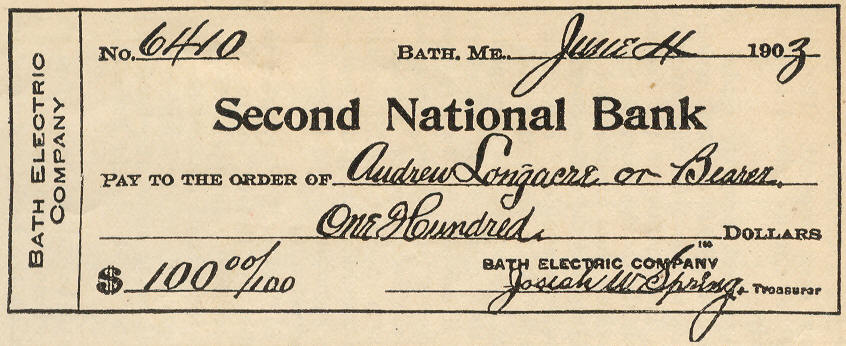 BATH ELECTRIC
COMPANY
No. 6410 BATH. ME. June 4 1903
Second National Bank
PAY TO THE ORDER OF Andrew Longacre or Bearer.
One Hundred DOLLARS
$ 100 00/100
BATH ELECTRIC COMPANY
Josiah W Spring, Treasurer